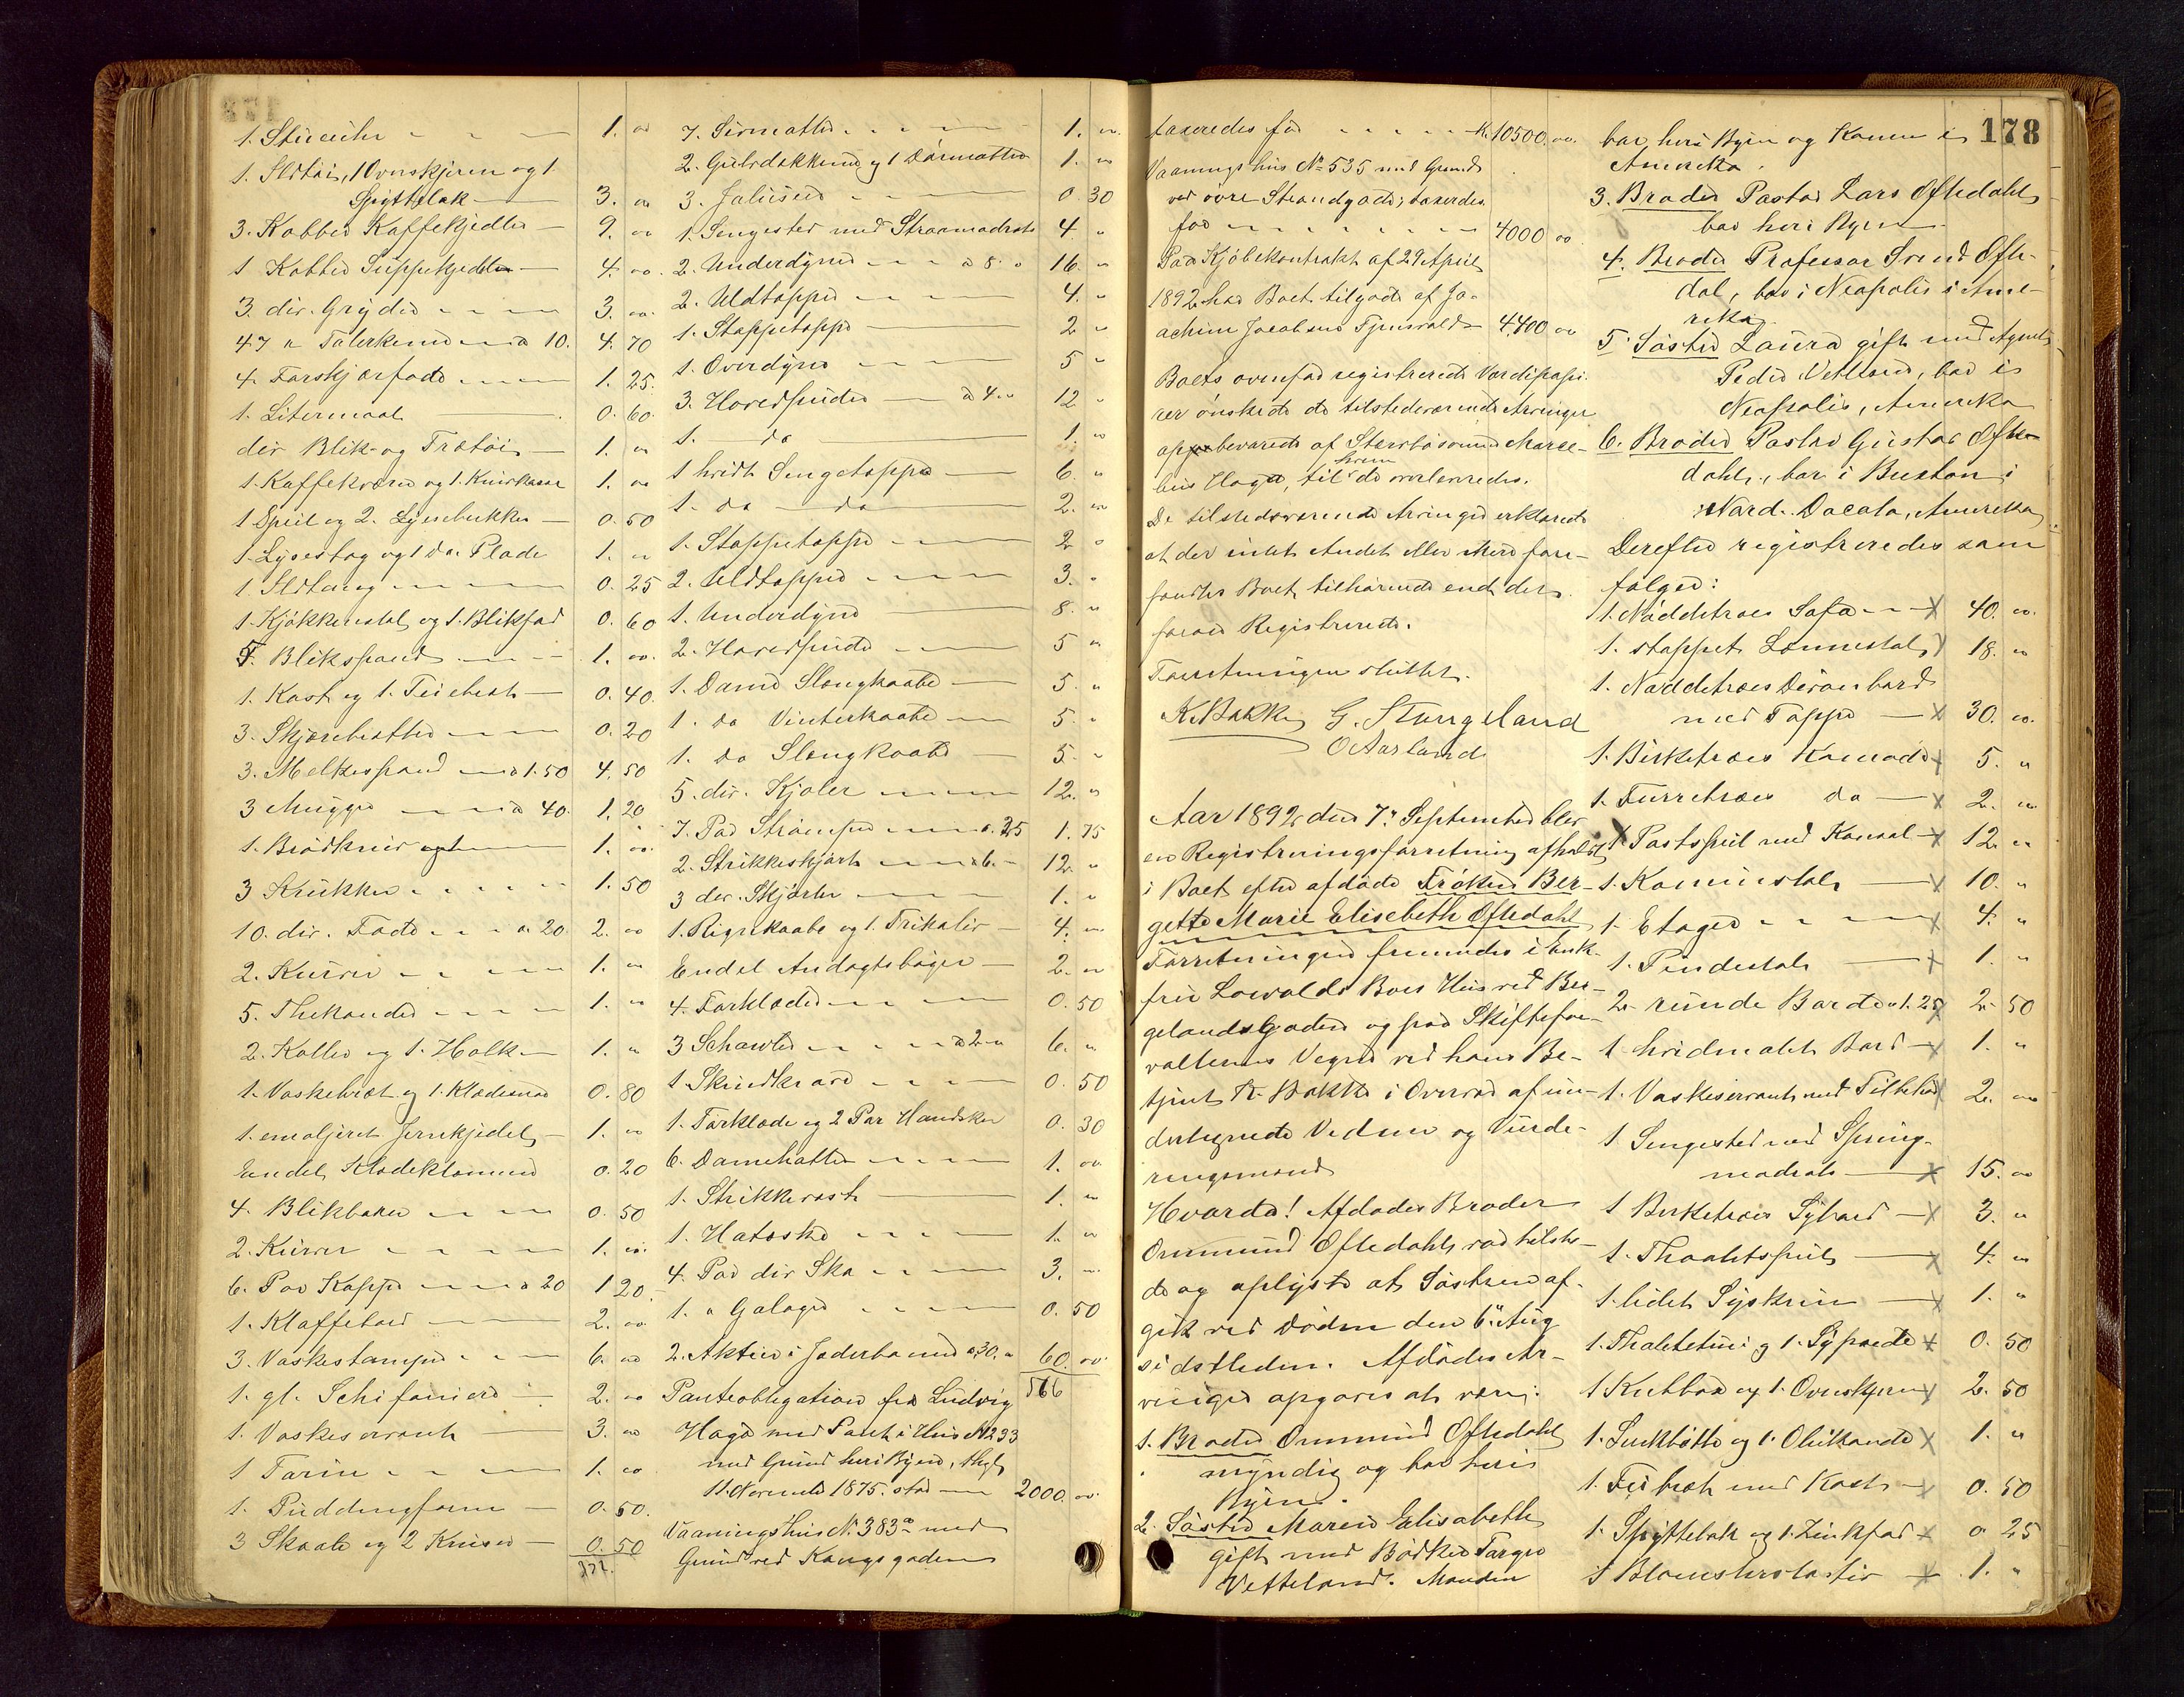 1. Ildtøi, 1 Ovnskjerm og 1
Spyttebak — 3. "
3. Kobber Kaffekjedler — 9. "
1 Kobber Suppekjedler — 4. oo.
3. div. Gryder — 3. oo.
47 " Talerkener a 10. 4. 70
4. Forskjærfade 1. 25.
1. Litermaal — 0. 60.
div Blik- og Trætøi — 1. "
1. Kaffekværn og 1. 1. oo
1 Speil og 2. — 0. 50
1. Lysestag og 1 do. Plade 1. "
1 Ildtang 0. 25
1. Kjøkkenstol og 1. Blikfad 0. 60
5. Blikspand 1. oo.
1. Kost og 1. Feiebret — 0. 40.
3. 0. 20
3. Melkespand a 1.50 4. 50
3 Mugger a 40. 1. 20
1. Brødkniv 1. oo.
3 Krukker 1. 50
10. div. Fade a 20 2. oo
2. Kurver 1. "
5. Thekander 1. "
2. Koller og 1. Holk 1. "
1. Vaskebræt og 1. Klædesnor 0. 80
1. emaljeret Jernkjedel — 1. "
Endel Klædeklemmer 0. 20
4. Blikboxer 0. 50
2. Kurver 1. oo.
6. Par Kopper a 20 1 20.
1. Klaffebord 2. oo.
3. Vaskestamper 6. oo
1. gl. Schifonier 2. oo
1. Vaskeservant 3. oo
1 1. oo
1. Puddingform — 0. 50.
3 Skaale og 2 Knive — 0. 50
7. 1. oo.
2. Gulvdækkener og 1 Dørmatte 1. "
3. Jalusier 0. 30
1. Sengested med Straamadrats 4. "
2. Underdyner a 8. " 16. "
2. Uldtepper 4. "
1. Stoppeteppe 2 "
1. Overdyne 5 "
3. Hovedpuder — a 4. " 12 "
1. — do — 1. "
1 hvidt Sengeteppe 6. "
1. do — do 2. "
1. Stoppeteppe 2 "
2. Uldtepper 3. "
1. Underdyne 8. "
2. Hovedpuder 5 "
1. Dame Slængkaabe — 5. "
1. do Vinterkaabe 5. "
1. do Slængkaabe — 5. "
5. div. Kjoler 12. "
7. Par Strømper a. 25 1. 75
2. Strikkeskjørt a 6. — 12. "
3 div. Skjørter 1. "
1. Regnkaabe og 1. Trikoliv — 4. "
Endel Andagtsbøger — 2. "
4. Forklæder 0. 50
3 Schawler a 2. " 6. "
1 Skindkrave 0. 50
1. Forklæde og 2 Par Handsker 0. 30
6. Damehatte 1. oo
1. Strikkevest 1. "
1. Hatæske 1. "
4. Par div Sko 3. "
1. " Galoger 0. 50
2. Aktier i Jæderbanen a 30. " 60. oo.
Panteobligation fra Ludvig 566
Haga med Pant i Hus No 233
med Grund her i Byen, thgl.
11. Novembr 1875. stor 2000. oo.
Vaaningshus No. 383a med
Grund ved Kongsgaden
178
taxeredes for K. 10500. oo.
Vaaningshus No 535 med Grund
ved øvre Strandgade, taxeredes
for 4000 oo
Paa Kjøbekontrakt af 29 April
1892 har Boet tilgode af Jo-
achim Jacobsens 4400 oo
Boets ovenfor registrerede Værdipapi-
rer ønskede de tilstedeværende Arvinger
opbevarede af Stervbosvend Marse-
lius Haga, til hvem de overleveredes.
De tilstedeværende Arvinger erklærede
at der intet Andet eller Mere fore-
fandtes Boet tilhørende end det
foran Registrerede.
Forretningen sluttet.
K. Bakke G. Stangeland
O Aarland
Aar 1892 den 7de September blev
en Registreringsforretning afholdt
i Boet efter afdøde Frøken Ber-
gette Marie Elisebeth Oftedahl
Forretningen fremmedes i Enk-
fru Lowalds Boes Hus ved Ber-
gelandsgaden og paa Skiftefor-
valterens Vegne ved hans Be-
tjent K. Bakke i Overvær af un-
dertegnede Vidner og Vurde-
ringsmænd
Hvorda! Afdødes Broder
Ommund Oftedahl var tilste-
de og oplyste at Søsteren af-
gik ved Døden den 6te Aug
sidstleden. Afdødes Ar-
vinger opgaves at være:
1. Broder Ommund Oftedahl
myndig og bor her i
Byen.
2. Søster Maren Elisabeth
gift med Bødker Torger
Vetteland. Manden
bor her i Byen og Konen i
Amerika.
3. Broder Pastor Lars Oftedahl
bor her i Byen
4. Broder Professor Svend Ofte-
dal, bor i Neapolis i Ame-
rika
5. Søster Laura gift med Agent
Peder Vetland, bor i
Neapolis, Amerika
6. Broder Pastor Gustav Ofte-
dahl, bor i Buxton i
Nord. Dacota, Amerika
Derefter registreredes som
følger:
1. Nøddetræes Sofa x 40. oo.
1. stoppet Lænestol x 18. "
1. Nøddetræes Divanbord
med Teppe — x 30. oo.
1. Birketræes Komode x 5. "
1. Furretræes do — x 2. "
1 Postspeil med Konsol x 12. "
1. Kominstol — x 10. "
1. Etager x 4. "
1. Pindestol — x 1. "
2. runde Borde a 1. 25 x 2. 50
1 hvidmalet Bord — x 1. "
1. Vaskeservant med Tilbehør x 2. "
1 Sengested med Spring-
madrats — x 15. oo
1 Birketræes Sybord — x 3. "
1. Thoaletspeil x 4. "
1. lidet Syskrin x 1. "
1. Thaletetui og 1. Sypude x 0. 50
1 Kulbox og 1. Ovnskjerm x 2. 50
1. og 1. Oliekande x 1. "
1. Feiebræt med Kost x 0. 50
1. Spyttebak og 1. Zinkfad x 0 25
1 x 1. "